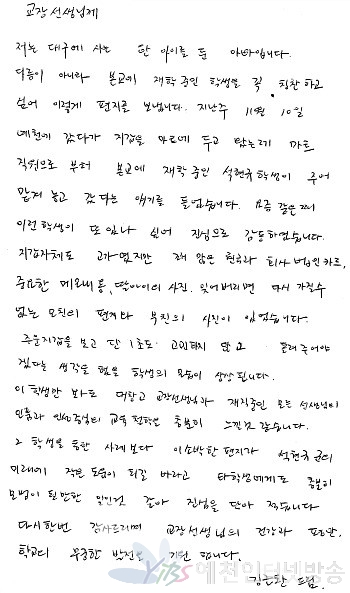 교장선생님께
저는 대구에 사는 한 아이를 둔 아빠입니다.
다름이 아니라 본교에 재학중인 학생을 꼭 칭찬하고
싶어 이렇게 편지를 보냅니다. 지난주 11월 10일
예천에 갔다가 지갑을 마트에 두고 왔는데 마트
직원으로 부터 본교에 재학중인 석현규학생이 주어
맡겨 놓고 갔다는 얘기를 들었습니다. 요즘 같은때
이런학생이 또 있나 싶어 진심으로 감동하였습니다.
지갑자체도 고가였지만 현금과 회사 법인카드,
중요한 메모내용, 딸아이의 사진, 잊어버리면 다시 가질수
없는 모친의 편지와 부친의 사진이 있었습니다.
주운지갑을 보고 단 1초도 고민하지 않고 돌려주어야
겠다는 생각을 했을 학생의 모습이 상상됩니다.
이 학생만 봐도 교장선생님과 재직중인 모든 선생님의
인품과 인성중심의 교육철학을 충분히 느낀것 같습니다.
그 학생을 통한 사례보다 이소박한 편지가 석현규군의
미래에 작은 도움이 되길 바라고 타학생에게도 충분히
모범이 될만한 일인것 같아 진심을 담아 적습니다
다시한번 감사드리며 교장선생님의 건강과
학교의 무궁한 발전을 기원합니다.
김은환 드림
YIBS 예천인터넷방송